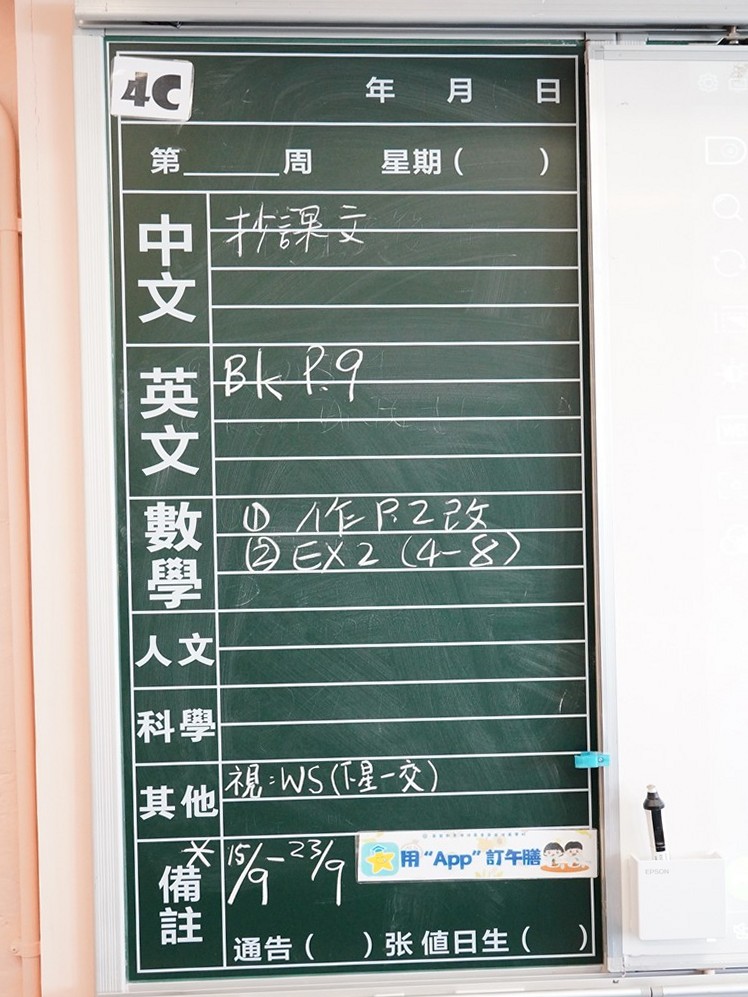 4C
年 月 日
第______周 星期( )
中文
抄課文
英文
Bk P.9
數學
① 作 P.2 改
② EX2 (4-8)
人文
科學
其他
視:WS(下星一交)
備註
* 15/9 - 23/9
用“App”訂午膳
通告( )张 值日生( )
EPSON